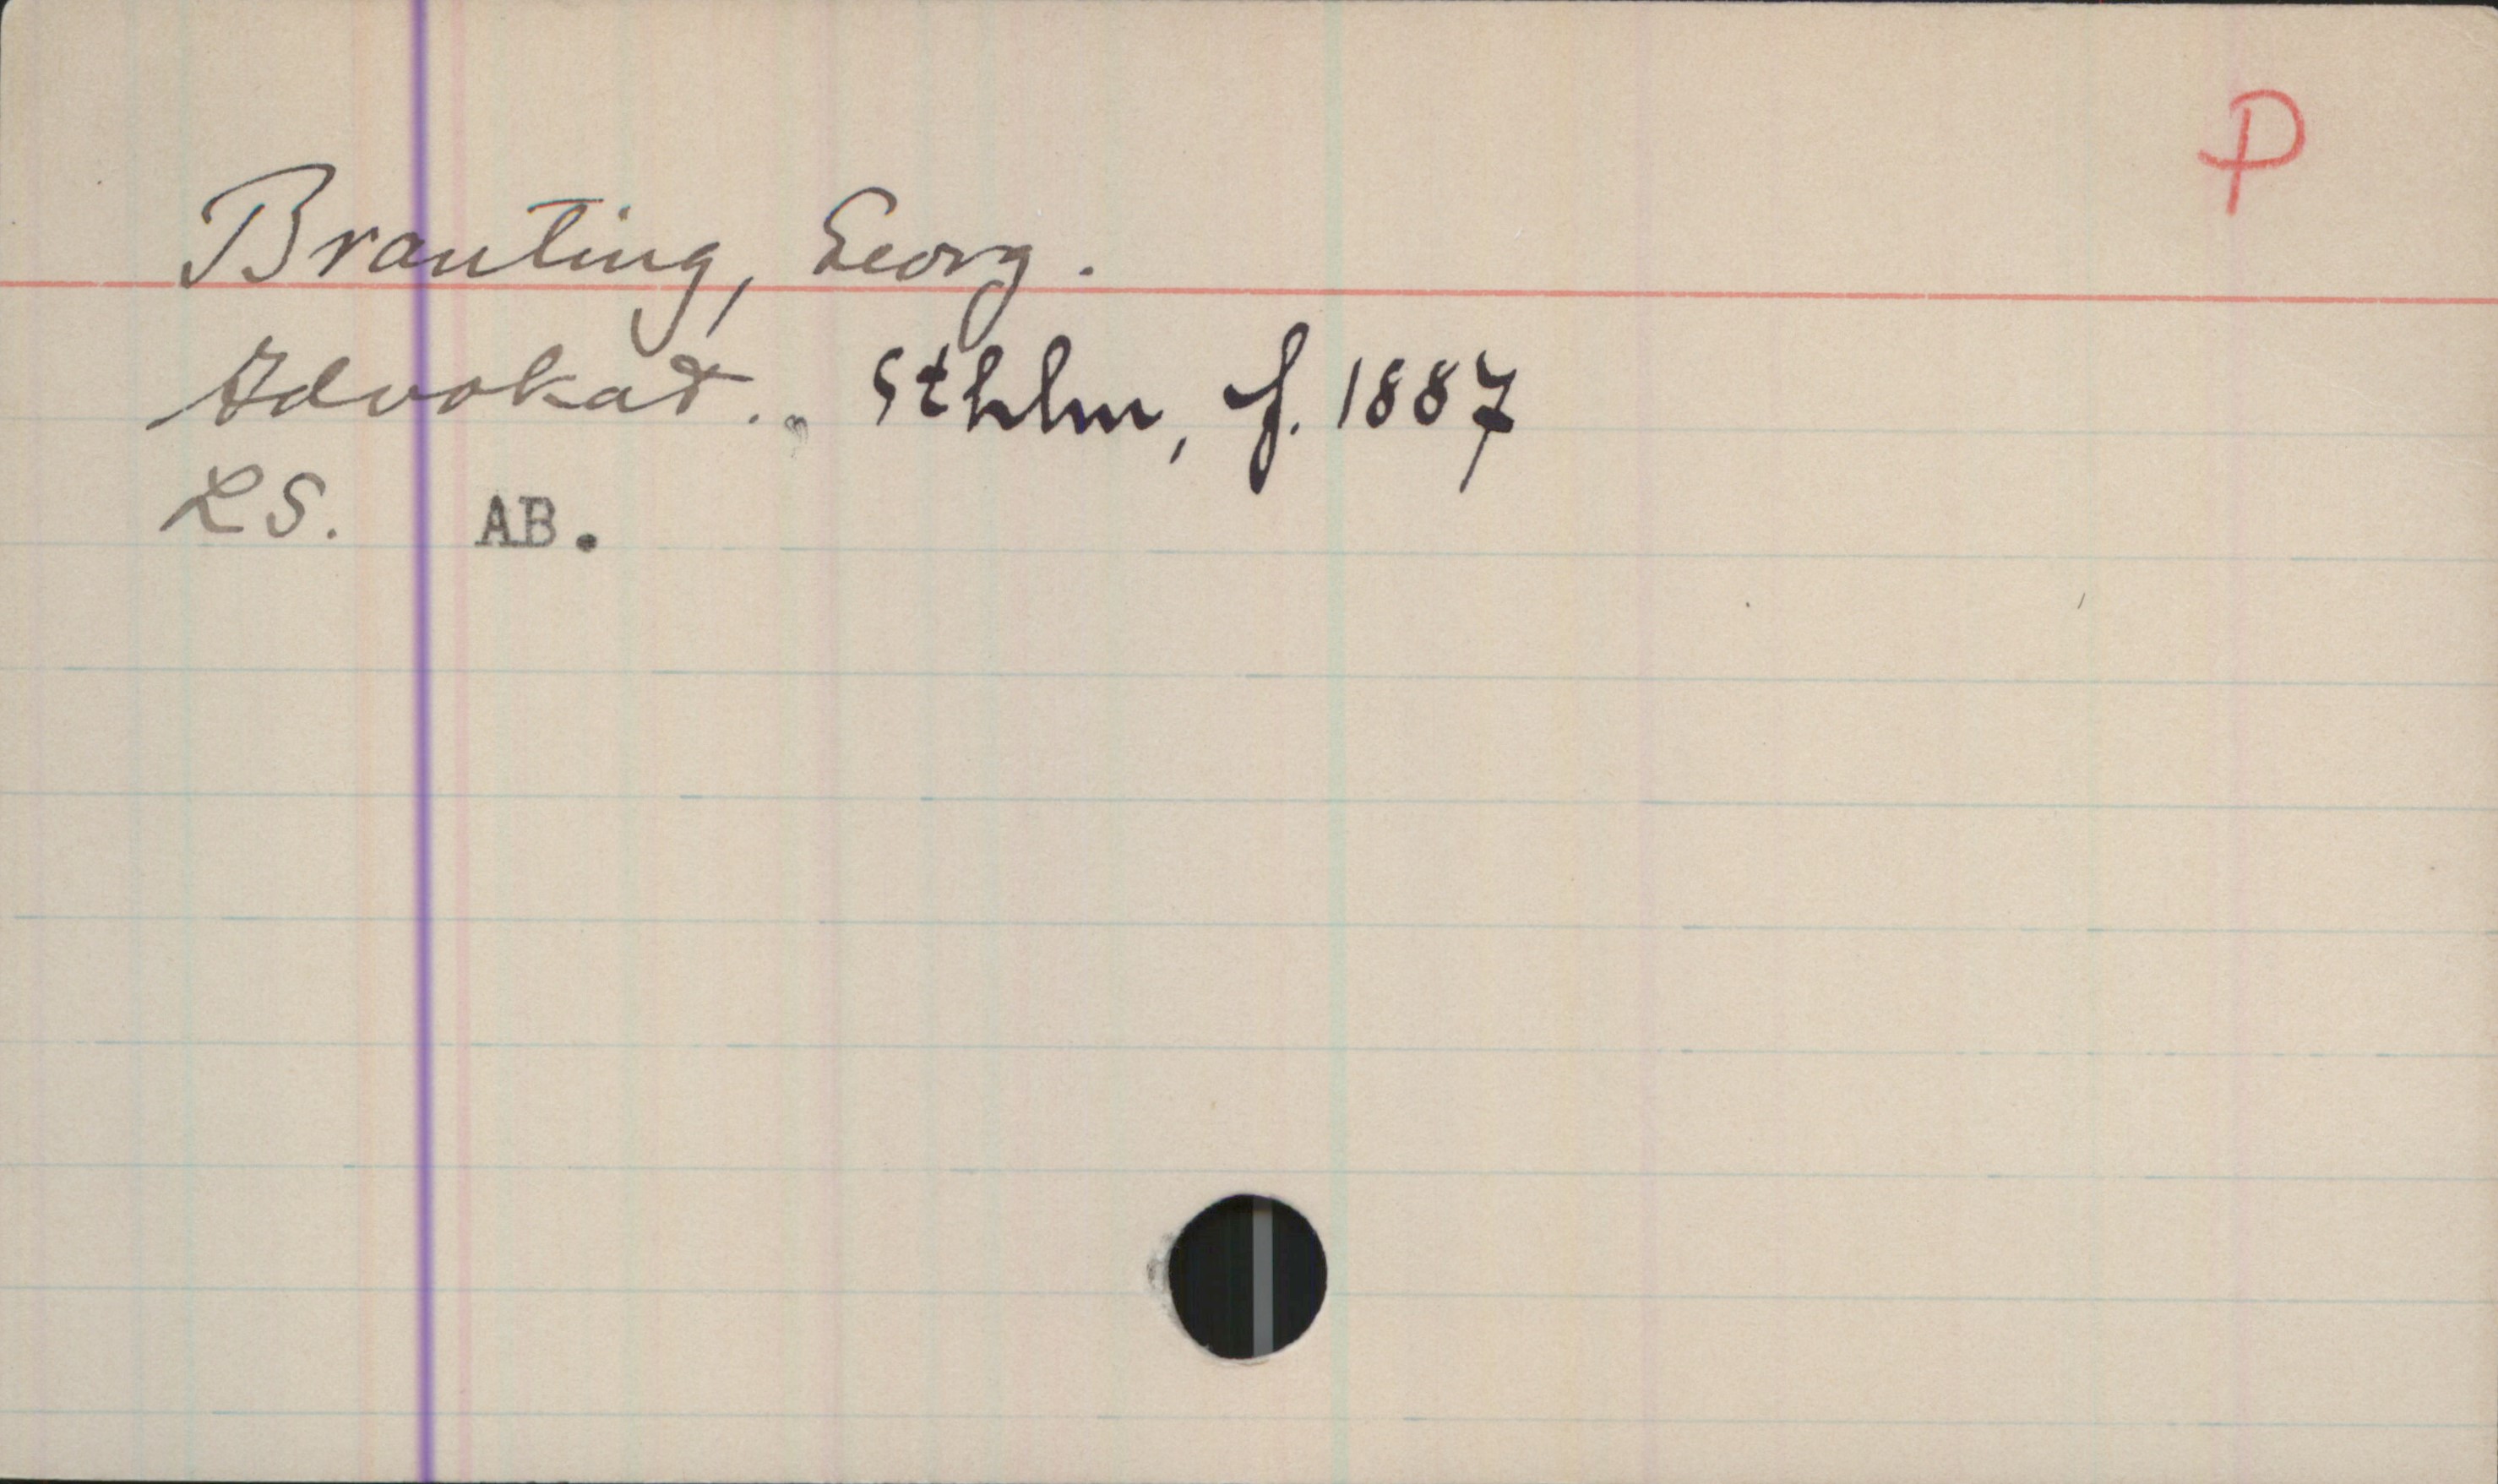 P
Branting, Georg.
Advokat., Sthlm, f. 1887
LS. AB.